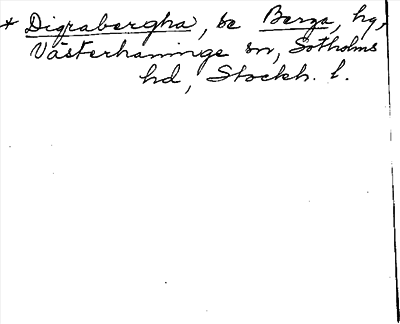 * Digrabergha, se Berga, hg,
Västerhaninge sn, Sotholms
hd, Stockh. l.